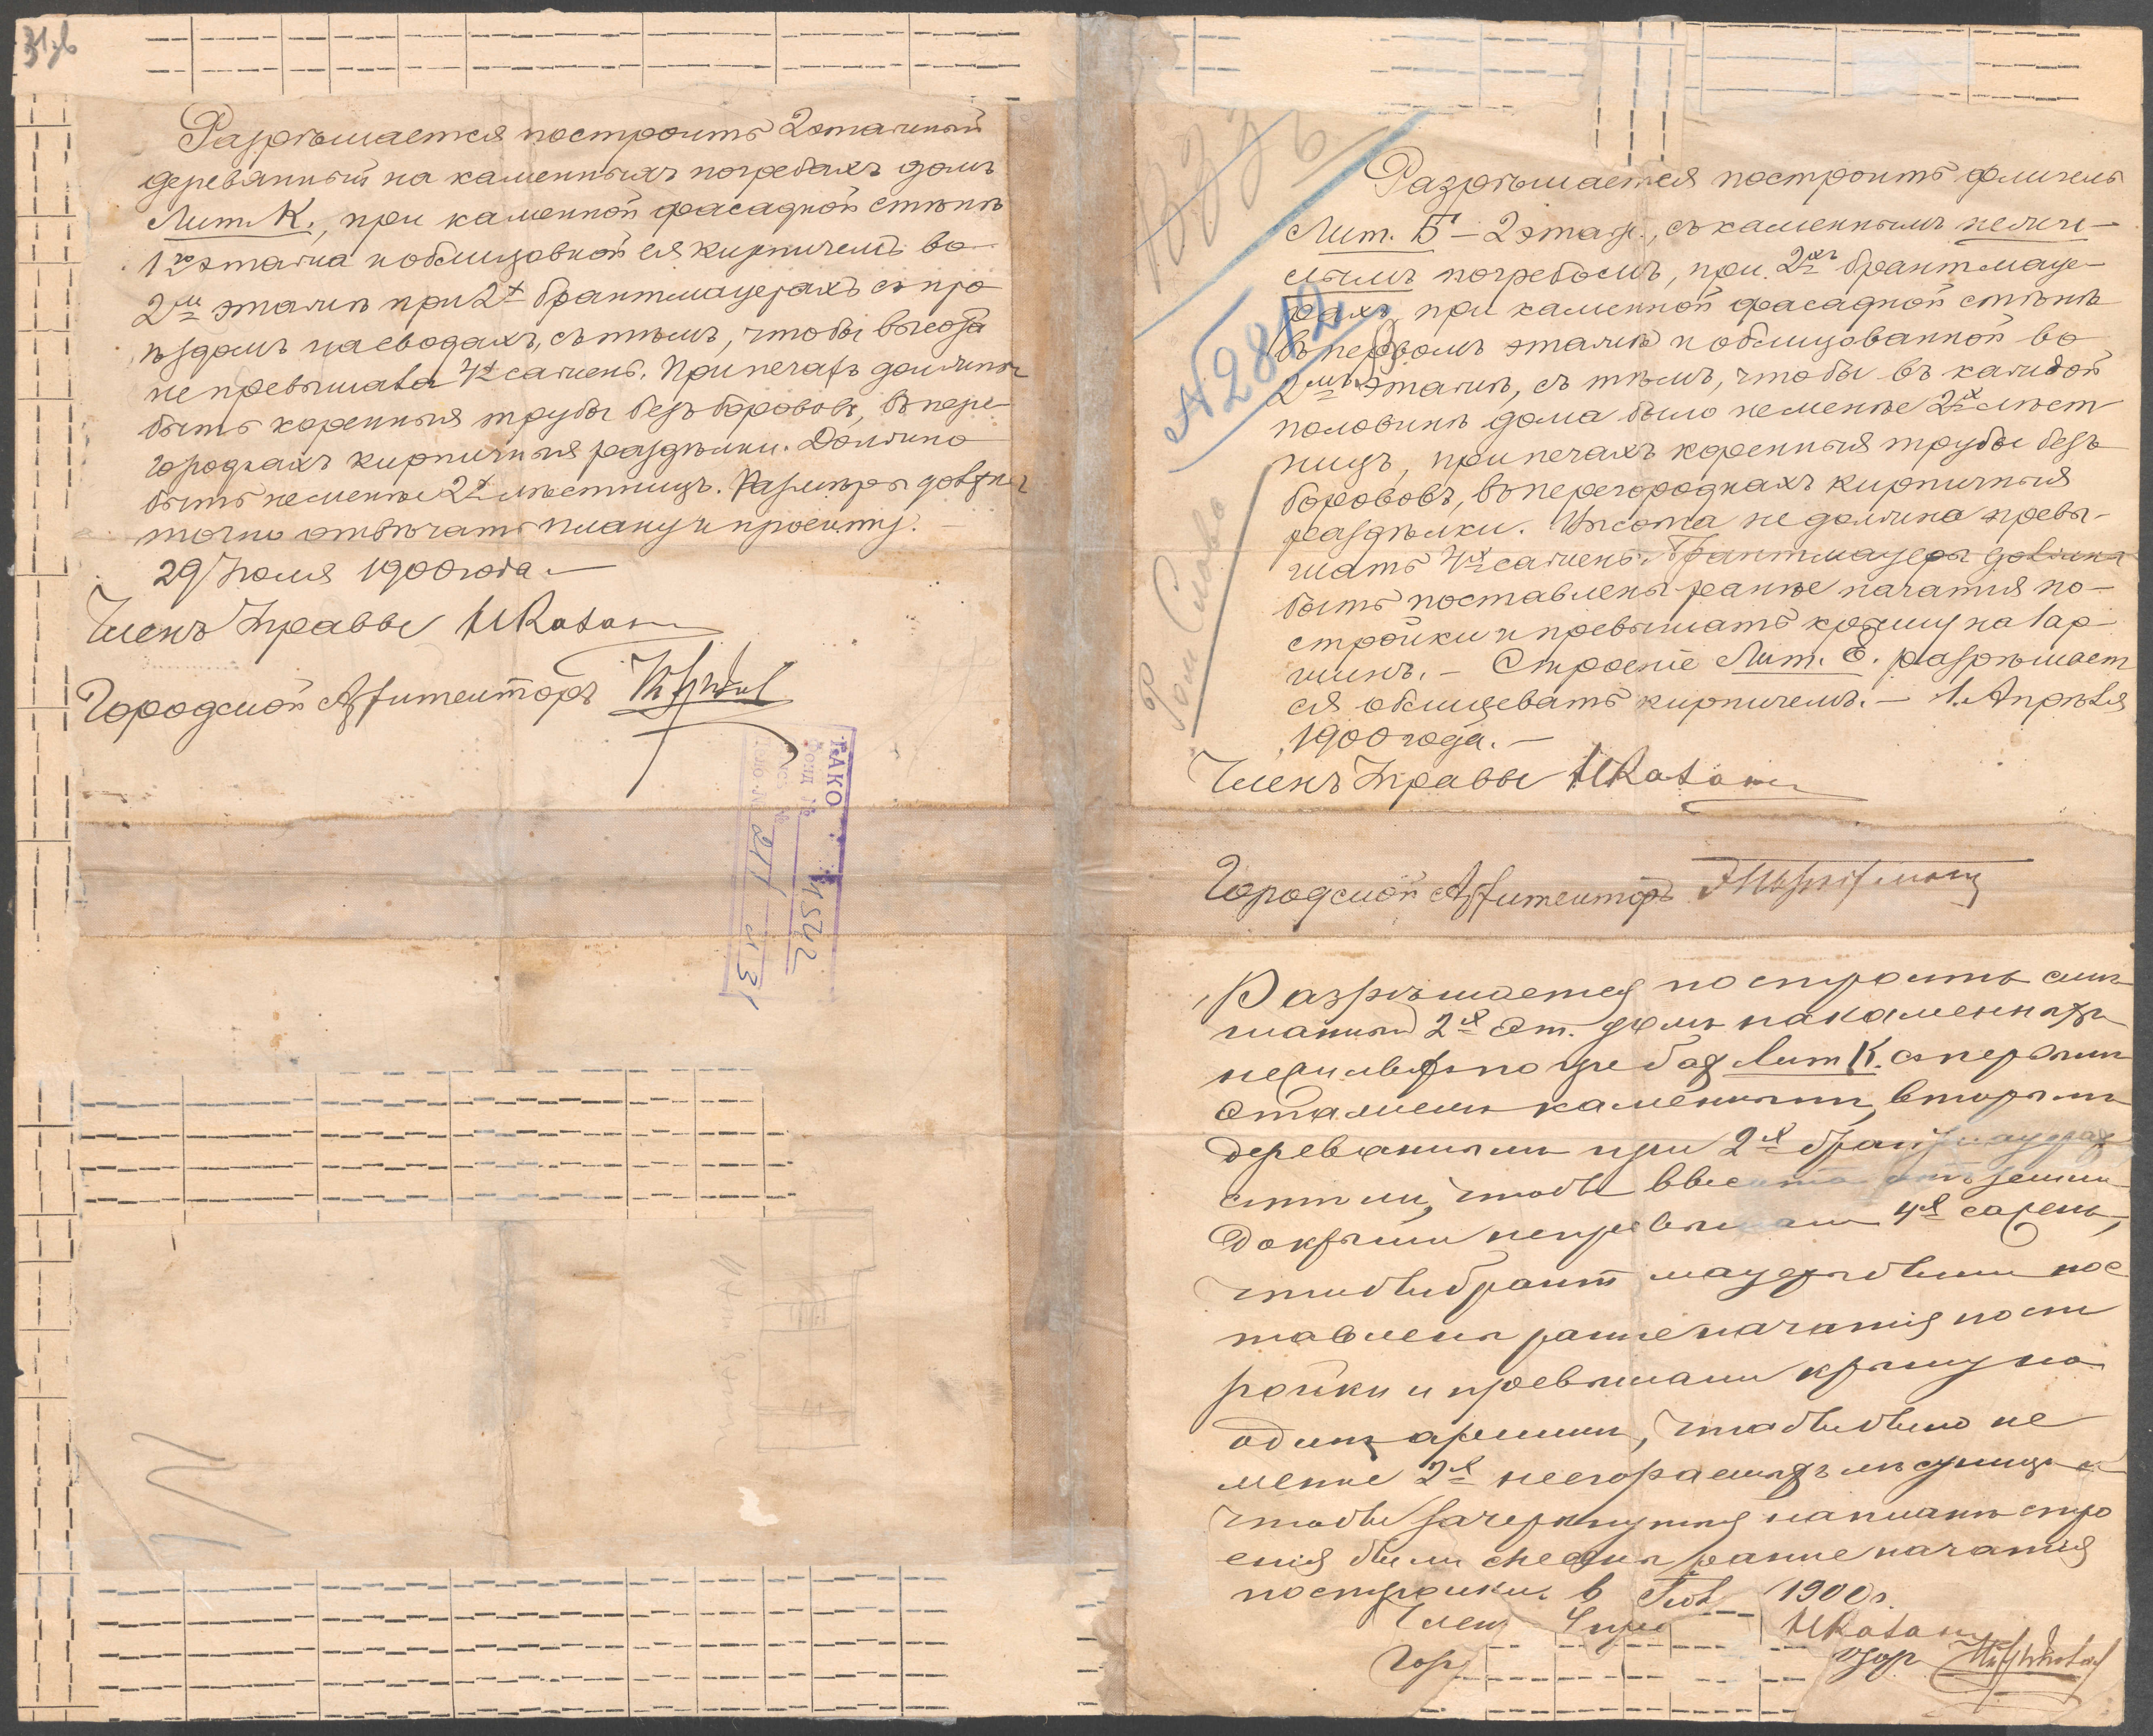 31об
Разрѣшается построить 2 этажный
деревянный на каменныхъ погребахъ домъ
Лит. К., при каменной фасадной стѣнѣ
1го этажа и облицовкой ея кирпичемъ во
2м этажѣ при 2х брантмауерахъ съ про
ѣздомъ на сводахъ, съ тѣмъ, чтобы высота
не превышала 4х сажень. При печахъ должны
быть коренныя трубы безъ борововъ, въ пере-
городкахъ кирпичныя раздѣлки. Должно
быть не менѣе 2х лѣстницъ. Размѣры должны
точно отвѣчать плану и проекту.
29 Июля 1900 года.
Членъ Управы
Городской Архитекторъ
ГАКО
Фонд №
1542
Опись №
Дело №
31
№ 2812
Разрѣшается построить флигель
Лит. Б – 2 этаж., съ каменнымъ нежи-
лымъ погребомъ, при 2хъ брантмауе-
рахъ, при каменной фасадной стѣнѣ
въ первомъ этажѣ и облицованной во
2мъ этажѣ, съ тѣмъ, чтобы въ каждой
половинѣ дома было не менѣе 2х лѣст
ницъ, при печахъ коренныя трубы безъ
борововъ, въ перегородкахъ кирпичныя
раздѣлки. Высота не должна превы-
шать 4х сажень. Брантмауеры должны
быть поставлены ранѣе начатия по-
стройки и превышать крышу на 1 ар-
шинъ. – Строеніе Лит. Е. разрѣшает
ся облицевать кирпичемъ. – 1. Апрѣля
1900 года. –
Членъ Управы
Городской Архитекторъ
Разрѣшается построить смѣ
шанный 2х эт. домъ на каменныхъ
нежилыхъ погребах Лит К. съ первымъ
этажемъ каменнымъ, вторымъ
деревяннымъ при 2х брантмауерах
съ тѣмъ, чтобы высота отъ земли
до крыши не превышала 4х сажень,
чтобы брантмауеры были пос
тавлены ранѣе начатия пост
ройки и превышали крышу на
один аршин, чтобы было не
менѣе 2х несгораемыхъ лѣстницъ и
чтобы зачеркнутыя на планѣ стро
енія были снесены ранѣе начатия
постройки. 6 Июл 1900 г.
Член Упра
Гор